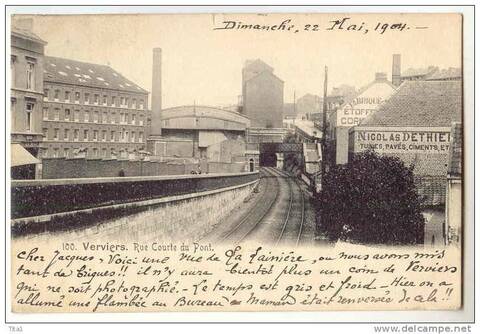 Dimanche, 22 Mai, 1904.
FABRIQUE
ETOFFES
NICOLAS DETHIE
TUILES, PAVÉS, CIMENTS, ET
100. Verviers. Rue Courte du Pont.
Cher Jacques, Voici une vue de La Lainière, ou nous avons mis
tant de Cigues!! il n'y aura bientôt plus un coin de Verviers
qui ne soit photographié. Le temps est gris et froid - Hier on a
allumé une flambée au Bureau - Maman était renversée de cela!!
delcampe.net